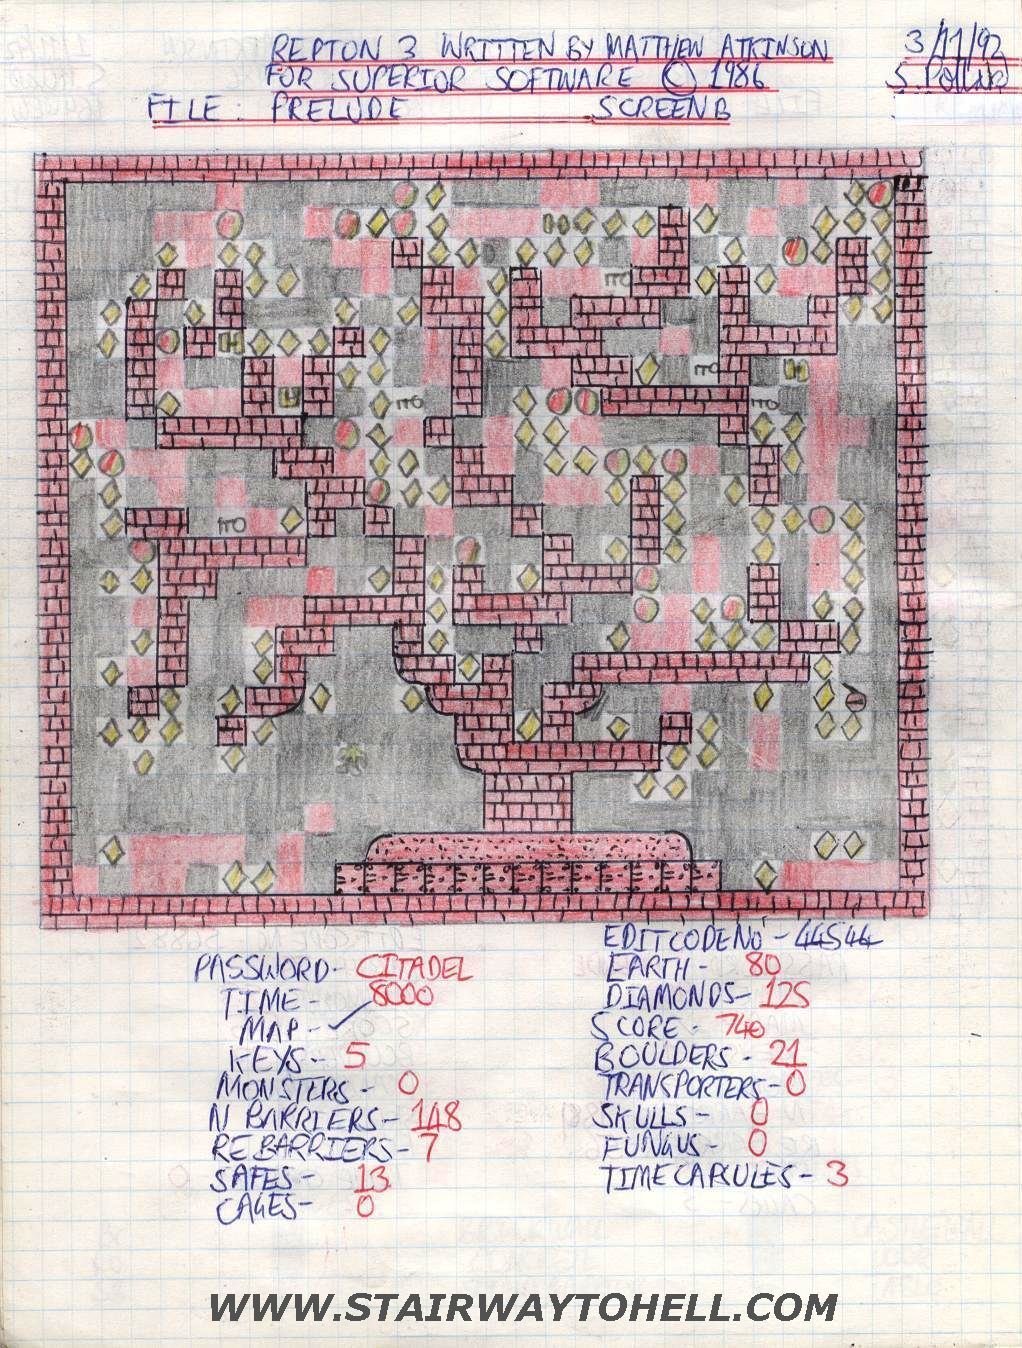 REPTON 3 WRITTEN BY MATTHEW ATKINSON
FOR SUPERIOR SOFTWARE © 1986
FILE : PRELUDE SCREEN B
3/11/92
S. Pollard
EDITCODE NO - 44544
PASSWORD - CITADEL
EARTH - 80
TIME - 8000
DIAMONDS - 125
MAP - ✓
SCORE - 740
KEYS - 5
BOULDERS - 21
MONSTERS - 0
TRANSPORTERS - 0
N BARRIERS - 148
SKULLS - 0
RE BARRIERS - 7
FUNGUS - 0
SAFES - 13
TIME CAPSULES - 3
CAGES - 0
WWW.STAIRWAYTOHELL.COM